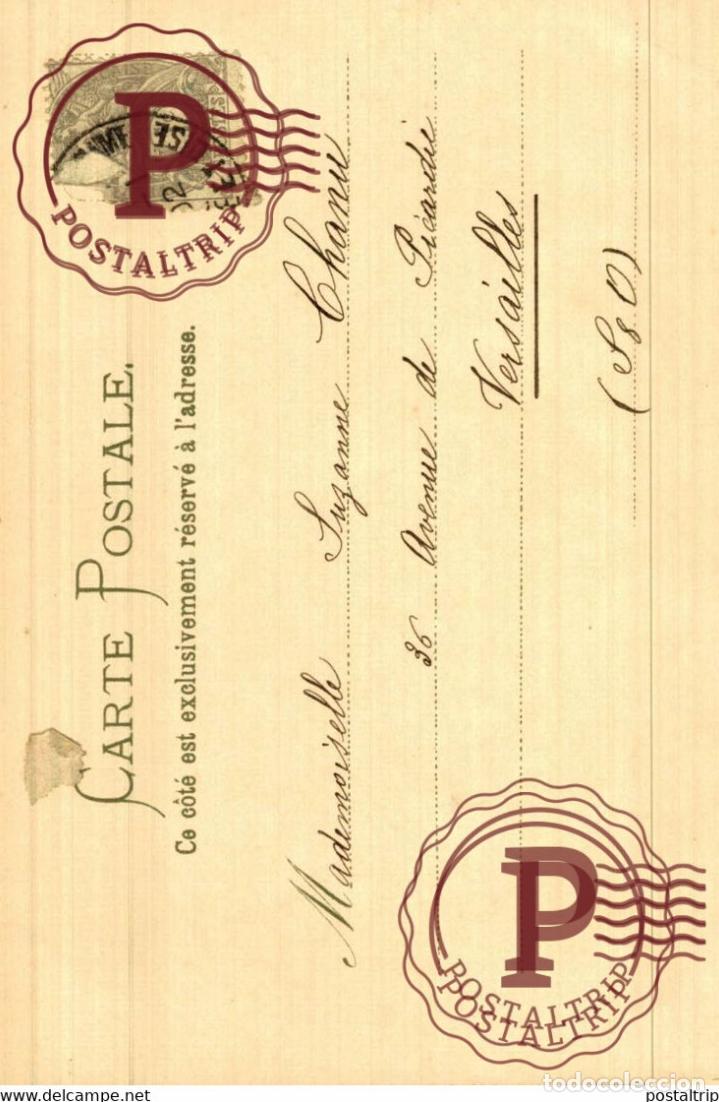 CARTE POSTALE.
Ce côté est exclusivement réservé à l'adresse.
Mademoiselle Suzanne Chanu
36 Avenue de Picardie
Versailles
(S & O)
P
POSTALTRIP
P
POSTALTRIP
POSTALTRIP
todocoleccion
www.delcampe.net
postaltrip